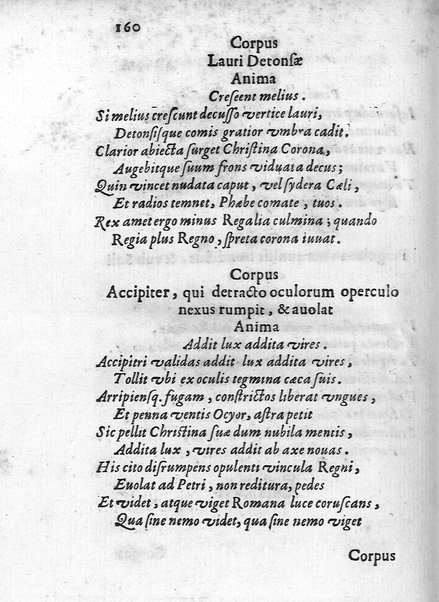 160
Corpus
Lauri Detonsæ
Anima
Creſcent melius.
Si melius creſcunt decuſſo vertice lauri,
Detonſiſque comis gratior vmbra cadit.
Clarior abiecta ſurget Chriſtina Corona,
Augebitque ſuum frons viduata decus;
Quin vincet nudata caput, vel ſydera Cæli,
Et radios temnet, Phæbe comate, tuos.
Rex amet ergo minus Regalia culmina; quando
Regia plus Regno, ſpreta corona iuuat.
Corpus
Accipiter, qui detracto oculorum operculo
nexus rumpit, & auolat
Anima
Addit lux addita vires.
Accipitri validas addit lux addita vires,
Tollit vbi ex oculis tegmina cæca ſuis.
Arripienſq. fugam, conſtrictos liberat vngues,
Et penna ventis Ocyor, aſtra petit
Sic pellit Chriſtina ſuæ dum nubila mentis,
Addita lux, vires addit ab axe nouas.
His cito diſrumpens opulenti vincula Regni,
Euolat ad Petri, non reditura, pedes
Et videt, atque viget Romana luce coruſcans,
Qua ſine nemo videt, qua ſine nemo viget
Corpus